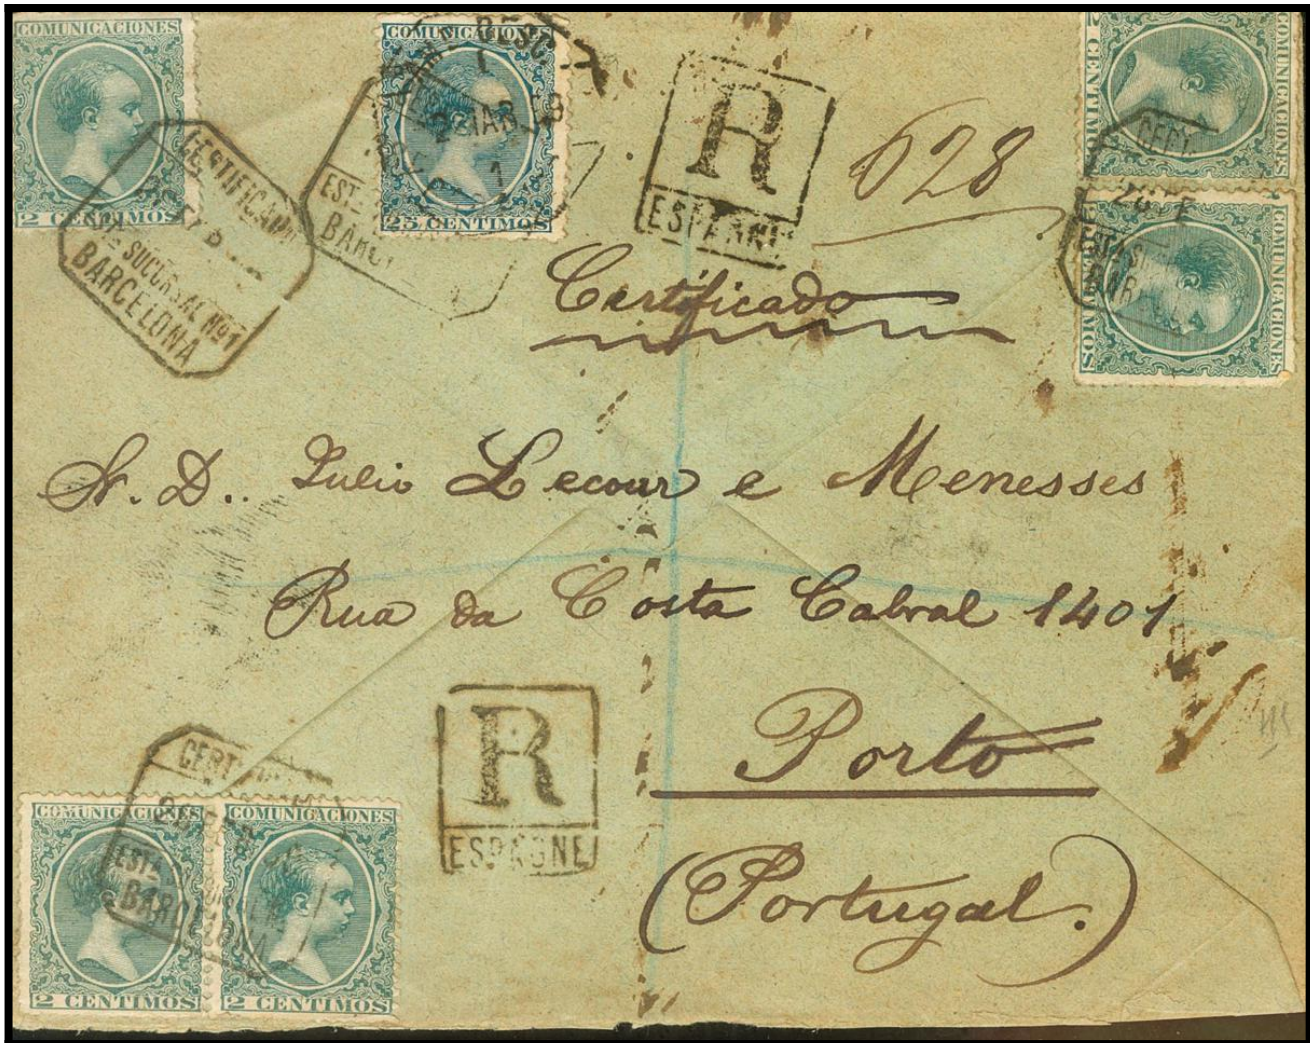 COMUNICACIONES
2 CENTIMOS
CERTIFICADO
ESTA. SUCURSAL Nº1
BARCELONA
COMUNICACIONES
25 CENTIMOS
DESC.
2 MAR 9
1
R
ESPAGNE
628
COMUNICACIONES
2 CENTIMOS
COMUNICACIONES
Certificado
Sr. D. Julio Lecour e Menesses
Rua da Costa Cabral 1401
Porto
(Portugal.)
R
ESPAGNE
COMUNICACIONES
2 CENTIMOS
COMUNICACIONES
2 CENTIMOS